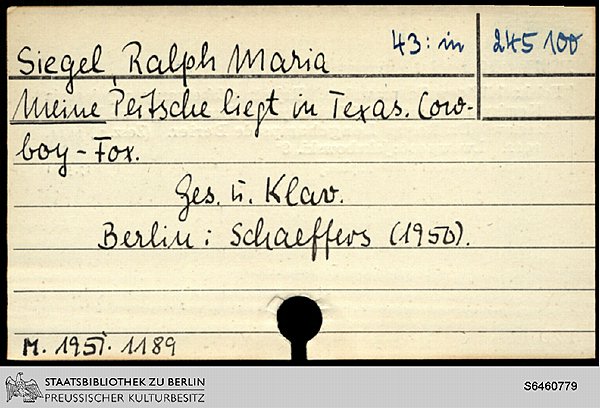 Siegel, Ralph Maria 43: in 245 100
Meine Peitsche liegt in Texas. Cow-
boy-Fox.
Ges. u. Klav.
Berlin: Schaeffers (1950).
M. 1951. 1189
STAATSBIBLIOTHEK ZU BERLIN
PREUSSISCHER KULTURBESITZ
S6460779